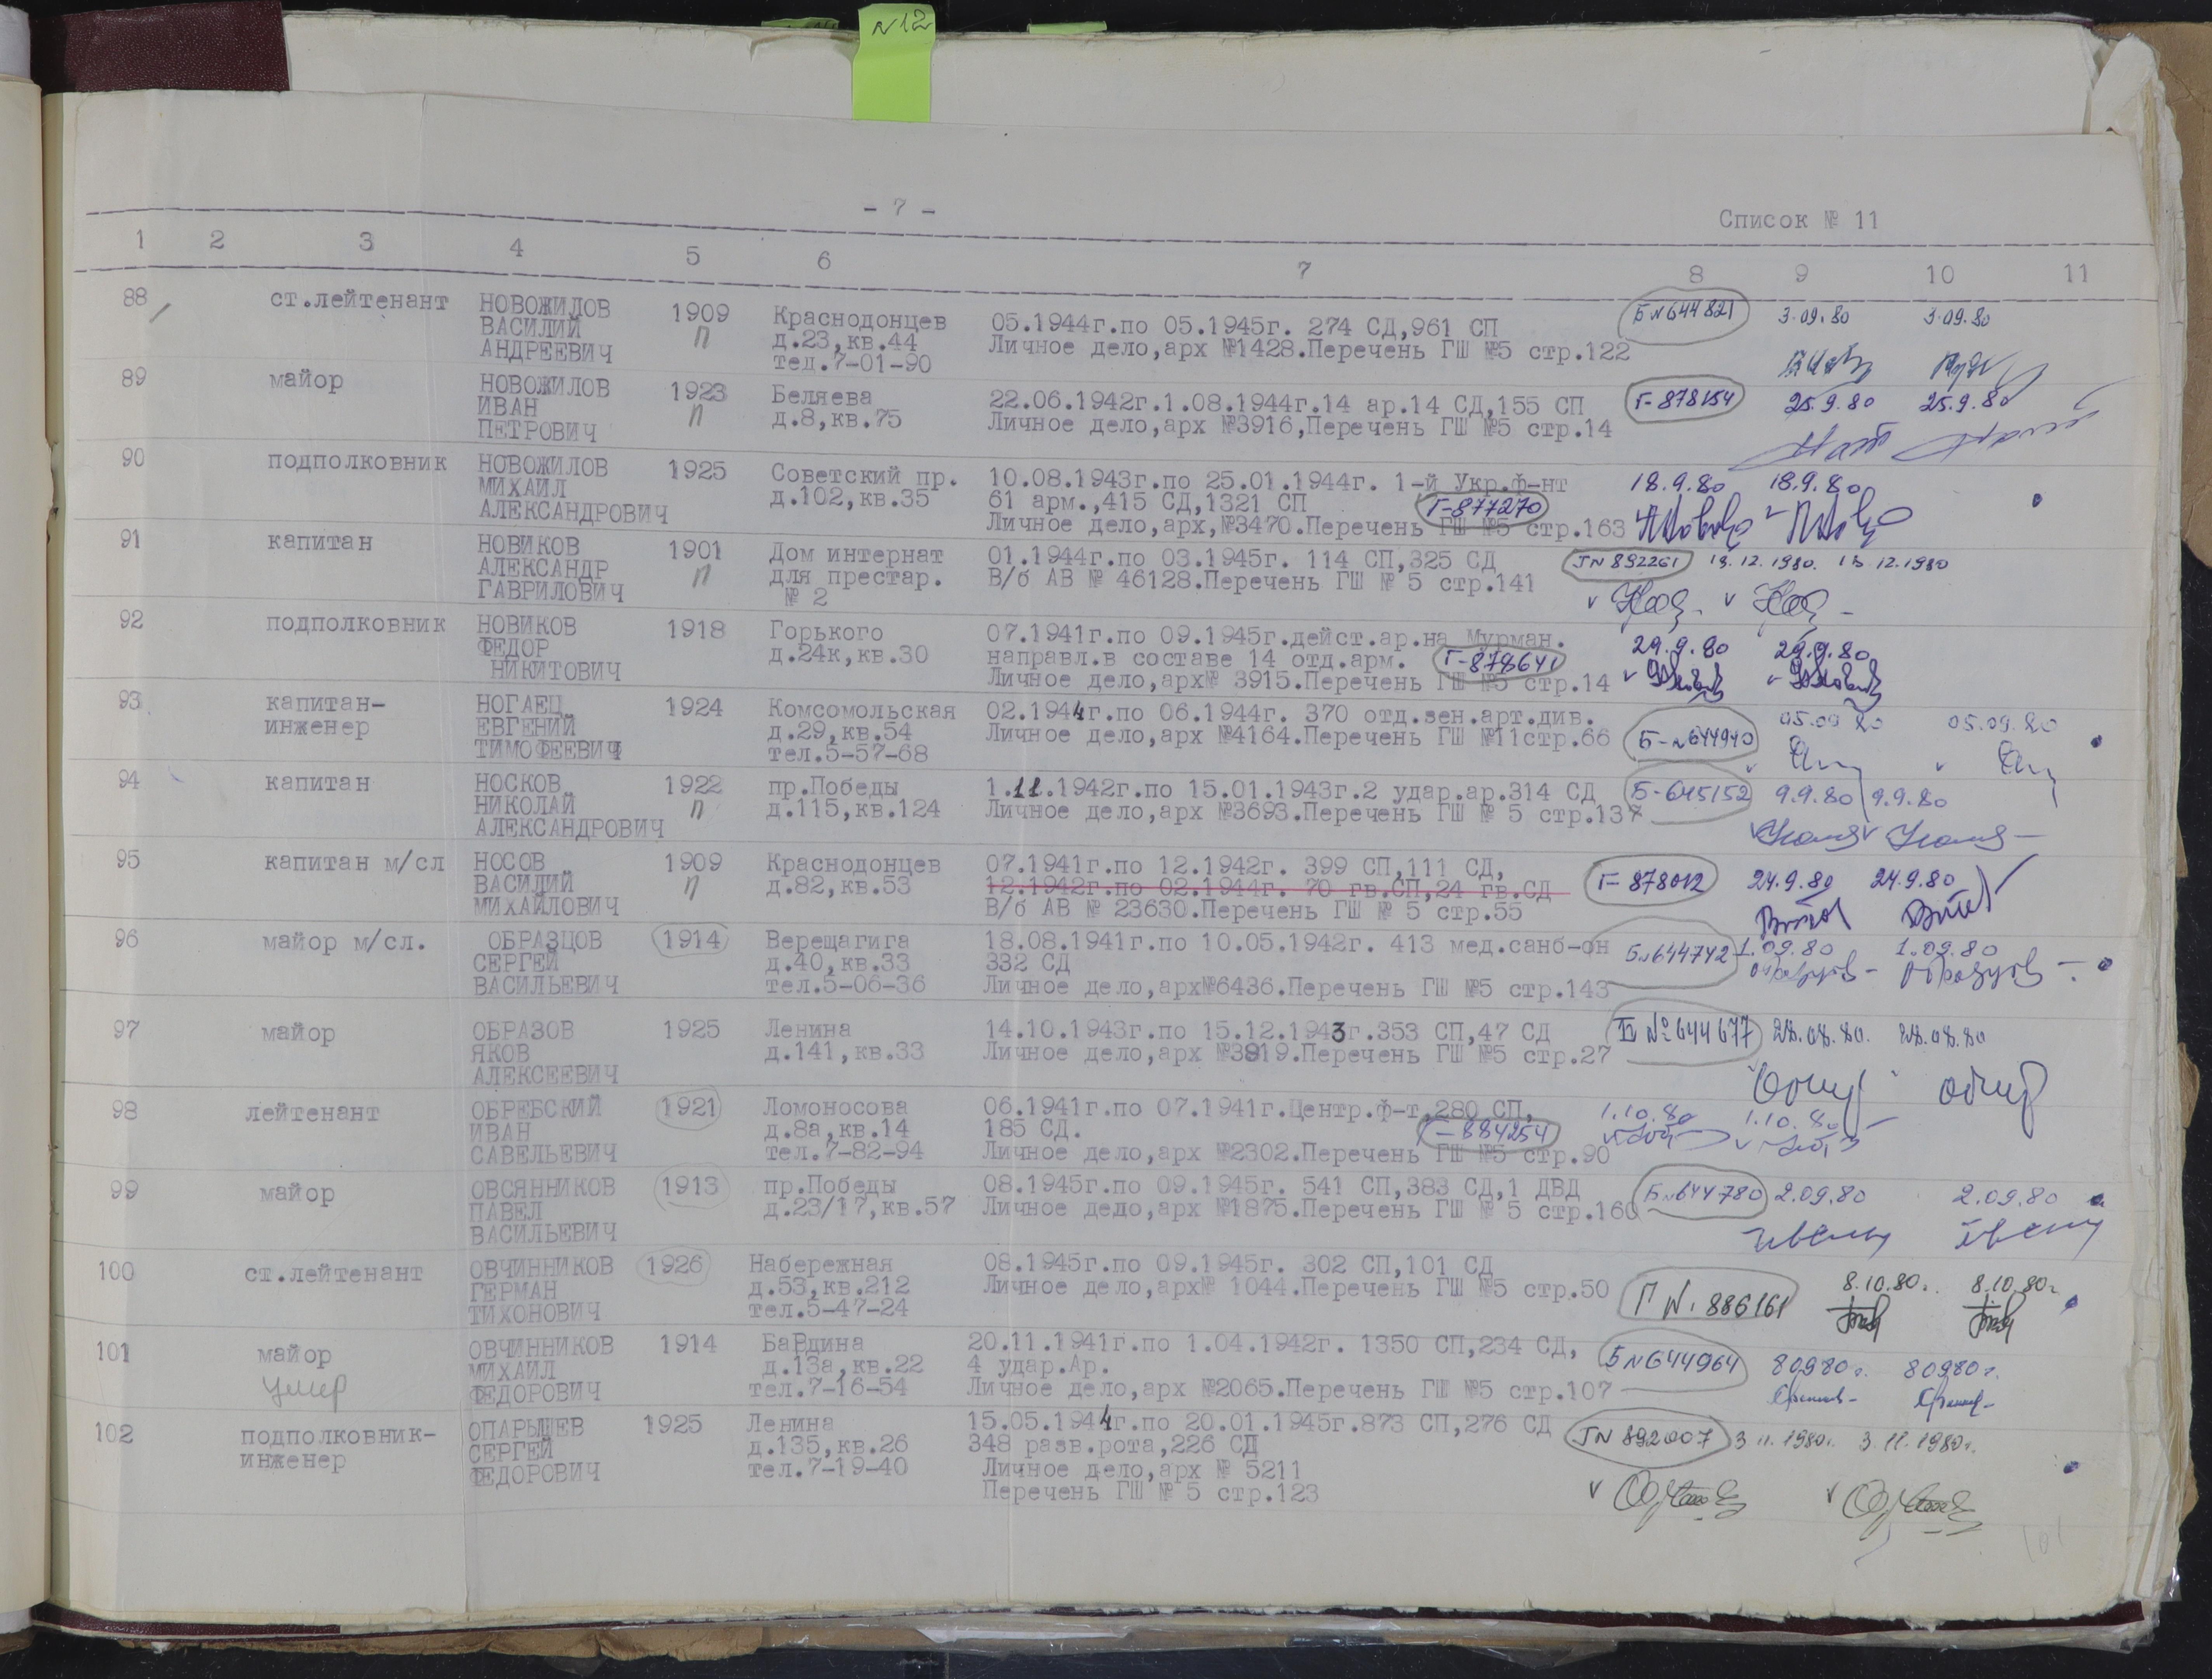 №12
- 7 -
Список № 11
1 2 3 4 5 6 7 8 9 10 11
88 ст.лейтенант НОВОЖИЛОВ 1909 Краснодонцев 05.1944г.по 05.1945г. 274 СД,961 СП Б№644821 3.09.80 3.09.80
ВАСИЛИЙ п д.23,кв.44 Личное дело,арх №1428.Перечень ГШ №5 стр.122
АНДРЕЕВИЧ тел.7-01-90
89 майор НОВОЖИЛОВ 1923 Беляева 22.06.1942г.1.08.1944г.14 ар.14 СД,155 СП Г-878154 25.9.80 25.9.80
ИВАН п д.8,кв.75 Личное дело,арх №3916,Перечень ГШ №5 стр.14
ПЕТРОВИЧ
90 подполковник НОВОЖИЛОВ 1925 Советский пр. 10.08.1943г.по 25.01.1944г. 1-й Укр.ф-нт 18.9.80 18.9.80
МИХАИЛ д.102,кв.35 61 арм.,415 СД,1321 СП Г-877270
АЛЕКСАНДРОВИЧ Личное дело,арх,№3470.Перечень ГШ №5 стр.163
91 капитан НОВИКОВ 1901 Дом интернат 01.1944г.по 03.1945г. 114 СП,325 СД ГN 892261 13.12.1980. 13.12.1980
АЛЕКСАНДР п для престар. В/б АВ № 46128.Перечень ГШ № 5 стр.141
ГАВРИЛОВИЧ № 2
92 подполковник НОВИКОВ 1918 Горького 07.1941г.по 09.1945г.дейст.ар.на Мурман. 29.9.80 29.9.80
ФЕДОР д.24к,кв.30 направл.в составе 14 отд.арм. Г-878641
НИКИТОВИЧ Личное дело,арх№ 3915.Перечень ГШ №5 стр.14
93 капитан- НОГАЕЦ 1924 Комсомольская 02.1944г.по 06.1944г. 370 отд.зен.арт.див. Б-№644940 05.09 80 05.09.80
инженер ЕВГЕНИЙ д.29,кв.54 Личное дело,арх №4164.Перечень ГШ №11стр.66
ТИМОФЕЕВИЧ тел.5-57-68
94 капитан НОСКОВ 1922 пр.Победы 1.11.1942г.по 15.01.1943г.2 удар.ар.314 СД Б-645152 9.9.80 9.9.80
НИКОЛАЙ п д.115,кв.124 Личное дело,арх №3693.Перечень ГШ № 5 стр.137
АЛЕКСАНДРОВИЧ
95 капитан м/сл НОСОВ 1909 Краснодонцев 07.1941г.по 12.1942г. 399 СП,111 СД, Г-878012 24.9.80 24.9.80
ВАСИЛИЙ п д.82,кв.53 12.1942г.по 02.1944г. 70 гв.СП,24 гв.СД
МИХАЙЛОВИЧ В/б АВ № 23630.Перечень ГШ № 5 стр.55
96 майор м/сл. ОБРАЗЦОВ 1914 Верещагига 18.08.1941г.по 10.05.1942г. 413 мед.санб-он Б№644742 1.09.80 1.09.80
СЕРГЕЙ д.40,кв.33 332 СД
ВАСИЛЬЕВИЧ тел.5-06-36 Личное дело,арх№6436.Перечень ГШ №5 стр.143
97 майор ОБРАЗОВ 1925 Ленина 14.10.1943г.по 15.12.1943г.353 СП,47 СД Б №644677 28.08.80. 28.08.80
ЯКОВ д.141,кв.33 Личное дело,арх №3919.Перечень ГШ №5 стр.27
АЛЕКСЕЕВИЧ
98 лейтенант ОБРЕБСКИЙ 1921 Ломоносова 06.1941г.по 07.1941г.Центр.ф-т,280 СП, 1.10.80 1.10.80
ИВАН д.8а,кв.14 185 СД. Г-884254
САВЕЛЬЕВИЧ тел.7-82-94 Личное дело,арх №2302.Перечень ГШ №5 стр.90
99 майор ОВСЯННИКОВ 1913 пр.Победы 08.1945г.по 09.1945г. 541 СП,383 СД,1 ДВД Б№644780 2.09.80 2.09.80
ПАВЕЛ д.23/17,кв.57 Личное дело,арх №1875.Перечень ГШ № 5 стр.160
ВАСИЛЬЕВИЧ
100 ст.лейтенант ОВЧИННИКОВ 1926 Набережная 08.1945г.по 09.1945г. 302 СП,101 СД Г N. 886161 8.10.80г. 8.10.80г
ГЕРМАН д.53,кв.212 Личное дело,арх№ 1044.Перечень ГШ №5 стр.50
ТИХОНОВИЧ тел.5-47-24
101 майор ОВЧИННИКОВ 1914 БаРдина 20.11.1941г.по 1.04.1942г. 1350 СП,234 СД, Б№644964 80980г. 80980г.
умер МИХАИЛ д.13а,кв.22 4 удар.Ар.
ФЕДОРОВИЧ тел.7-16-54 Личное дело,арх №2065.Перечень ГШ №5 стр.107
102 подполковник- ОПАРЫШЕВ 1925 Ленина 15.05.1944г.по 20.01.1945г.873 СП,276 СД ГN 892007 3 11.1980г. 3.11.1980г.
инженер СЕРГЕЙ д.135,кв.26 348 разв.рота,226 СД
ФЕДОРОВИЧ тел.7-19-40 Личное дело,арх № 5211
Перечень ГШ № 5 стр.123